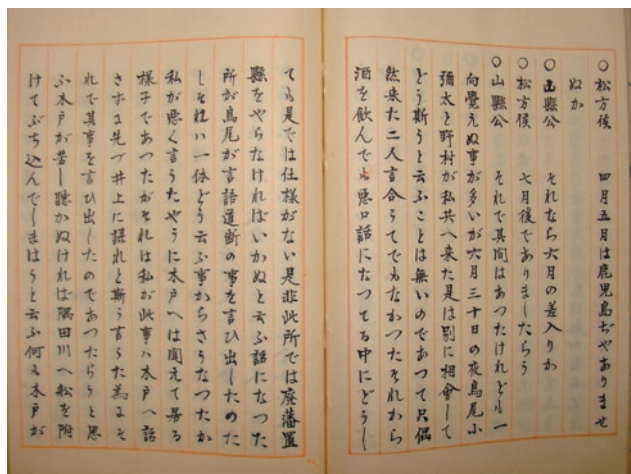 〇松方侯　四月五月は鹿児島ぢやありませ
ぬか
〇山縣公　それなら六月の差入りか
〇松方侯　七月後でありましたらう
〇山縣公　それで其間はあつたけれども一
向覺えぬ事が多いが六月三十日の夜鳥尾小
彌太と野村が私共へ来た是は別に相會して
どう斯うと云ふことは無いのであつて只偶
然来た二人言合うてでもなかつたそれから
酒を飲んでも悪口話になつてる中にどうし
ても是では仕様がない是非此所では廃藩置
縣をやらなければいかぬと云ふ話になつた
所が鳥尾が言語道断の事を言ひ出したのた
しそれハ一体どう云ふ事からさうなつたか
私が悪く言うたやうに木戸へは聞えて居る
様子であつたがそれは私が此事ハ木戸へ話
さずに先づ井上に謀れと斯う言うた為にそ
れで其事を言ひ出したのであつたらうと思
ふ木戸が若し聴かぬければ隅田川へ船を附
けてぶち込んでしまはうと云ふ何も木戸が